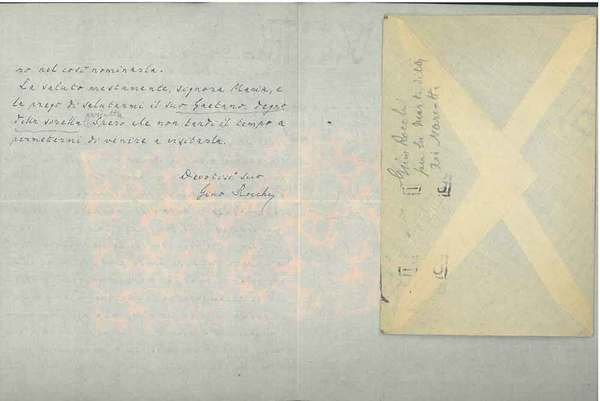 no nel così nominarla.
La saluto mestamente, signora Maria, e
la prego di salutarmi il suo Gaetano degno
della sorella. Spero che non tardi il tempo a
permettermi di venire a visitarla.
Devotiss suo
Gino Rocchi
Gino Rocchi
per la morte della